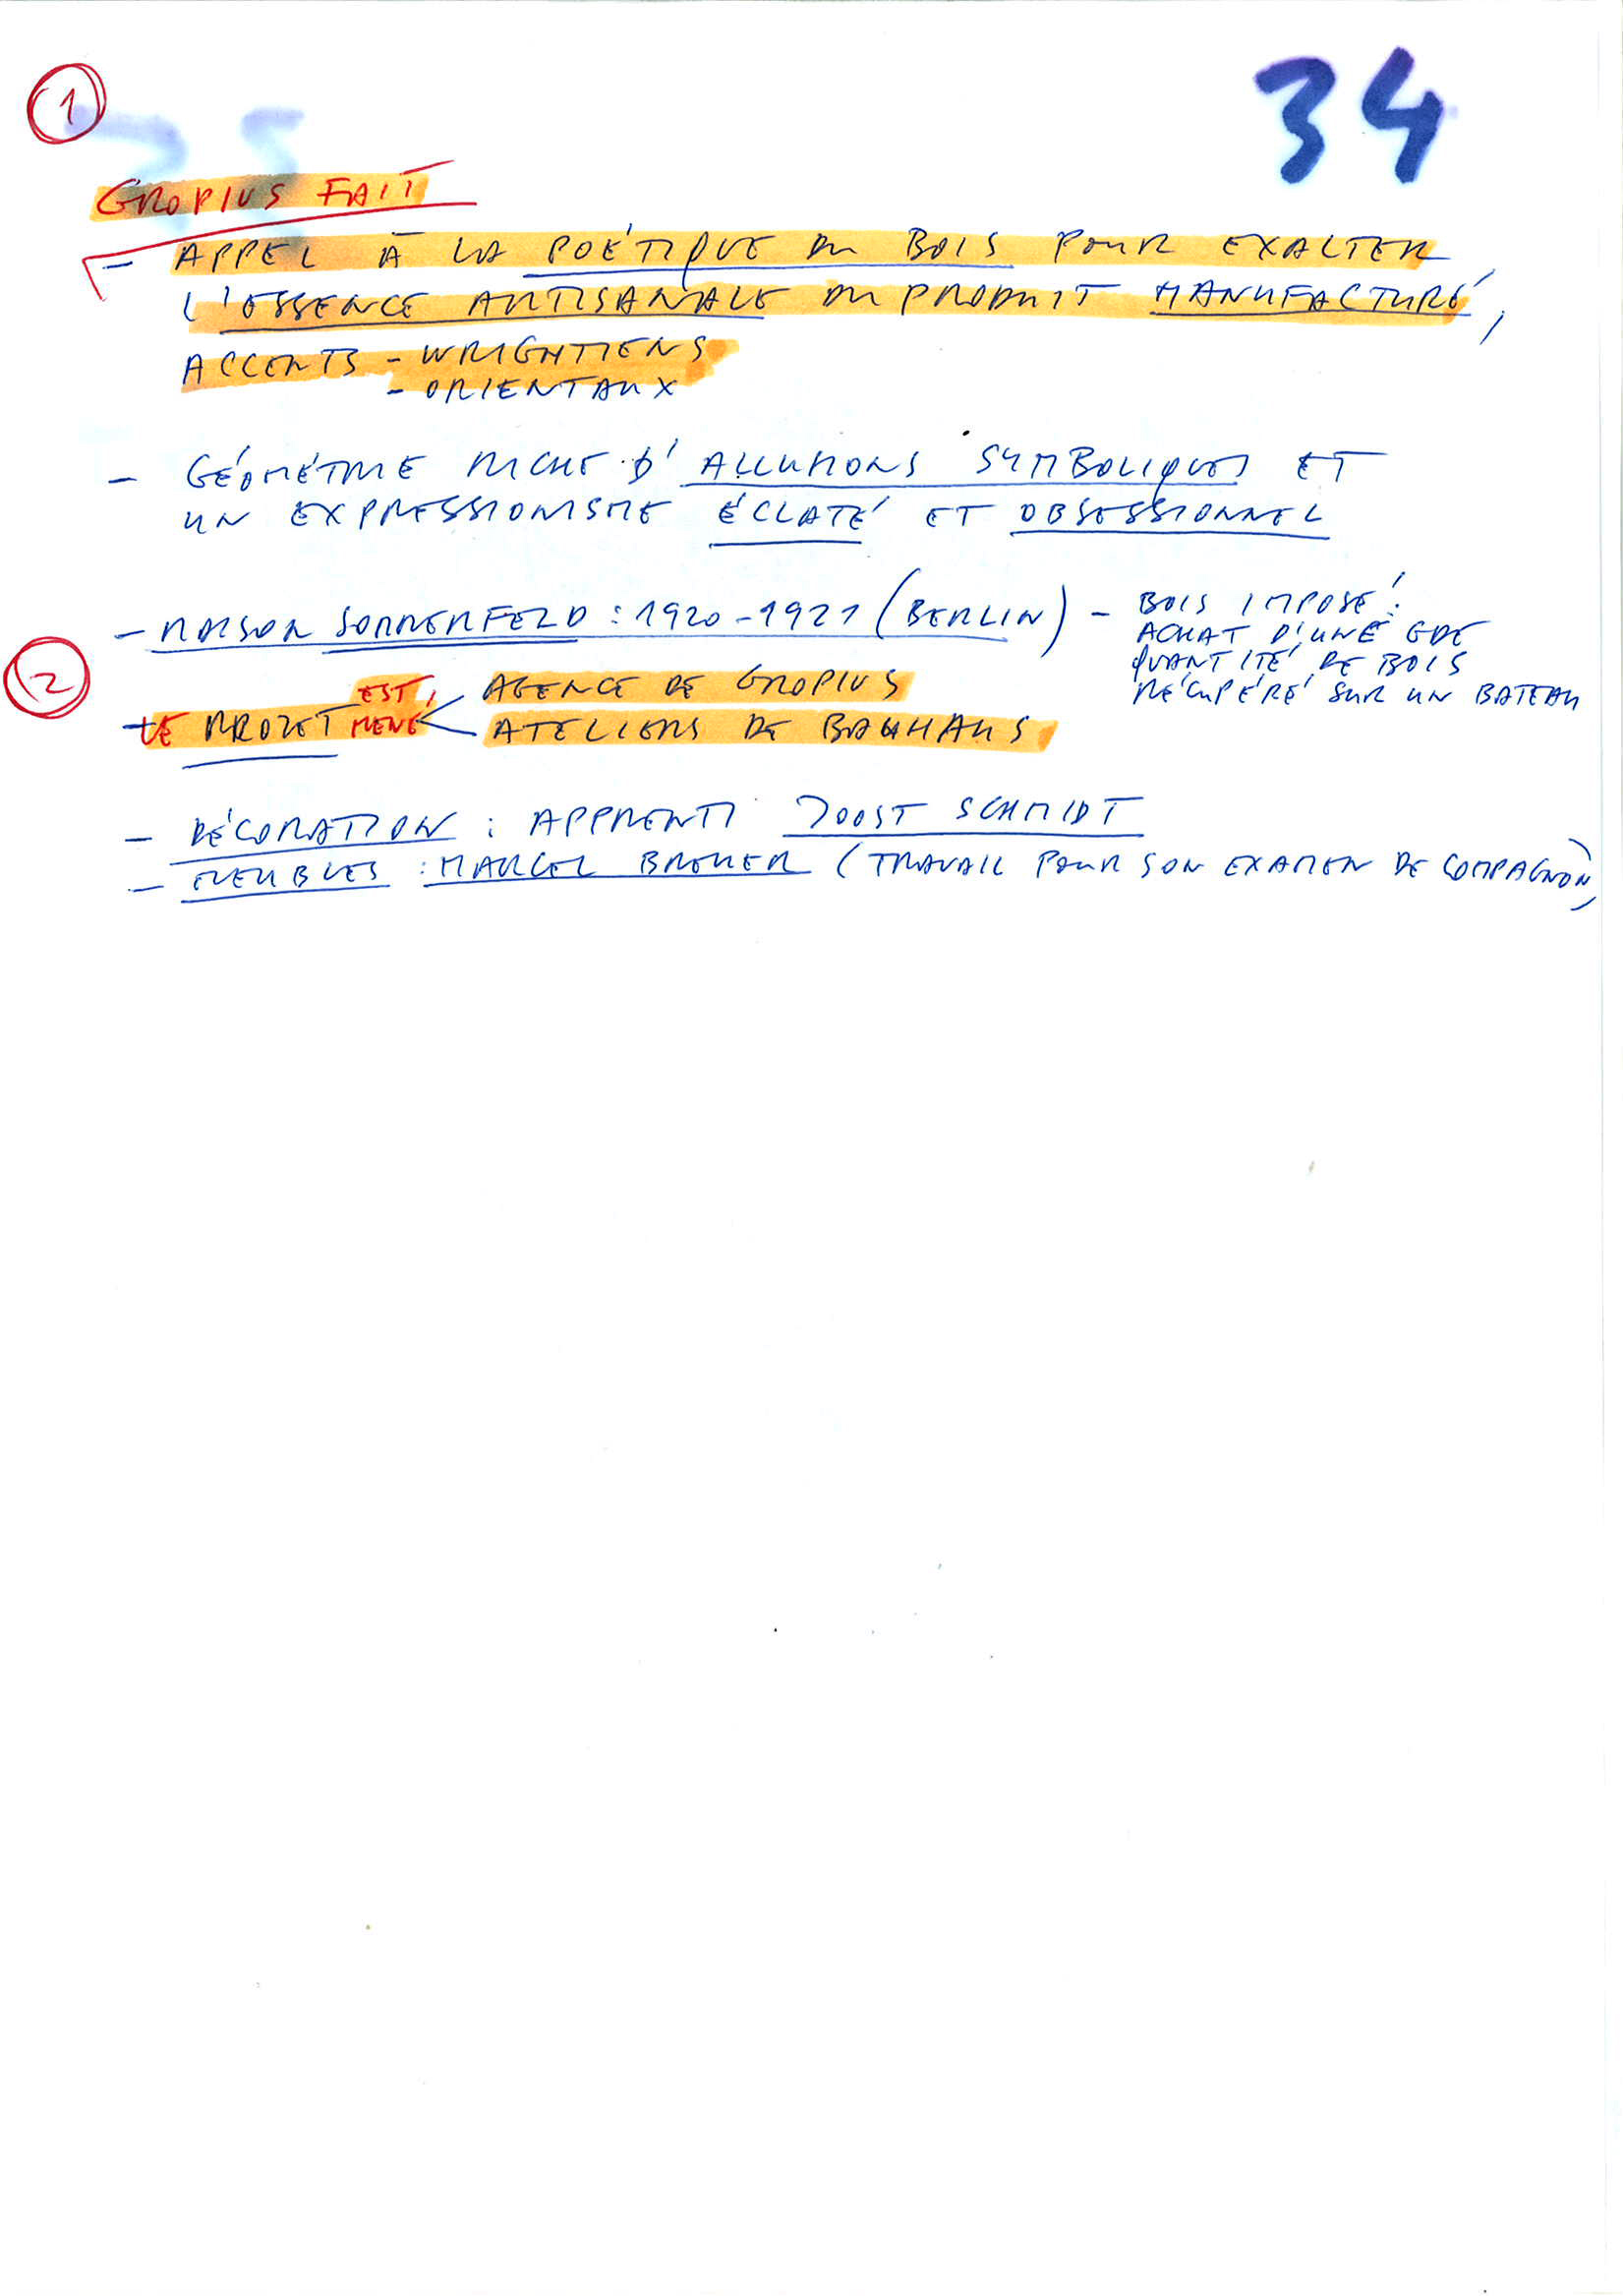 1
34
GROPIUS FAIT
- APPEL À LA POÉTIQUE DU BOIS POUR EXALTER
L'ESSENCE ARTISANALE DU PRODUIT MANUFACTURÉ,
ACCENTS - WRIGHTIENS
- ORIENTAUX
- GÉOMÉTRIE RICHE D'ALLUSIONS SYMBOLIQUES ET
UN EXPRESSIONISME ÉCLATÉ ET OBSESSIONNEL
- MAISON SOMMERFELD : 1920-1921 (BERLIN) - BOIS IMPOSÉ :
ACHAT D'UNE GDE
QUANTITÉ DE BOIS
RÉCUPÉRÉ SUR UN BATEAU
2
- LE PROJET EST MENÉ
AGENCE DE GROPIUS
ATELIERS DE BAUHAUS
- DÉCORATION : APPRENTI JOOST SCHMIDT
- MEUBLES : MARCEL BREUER (TRAVAIL POUR SON EXAMEN DE COMPAGNON)